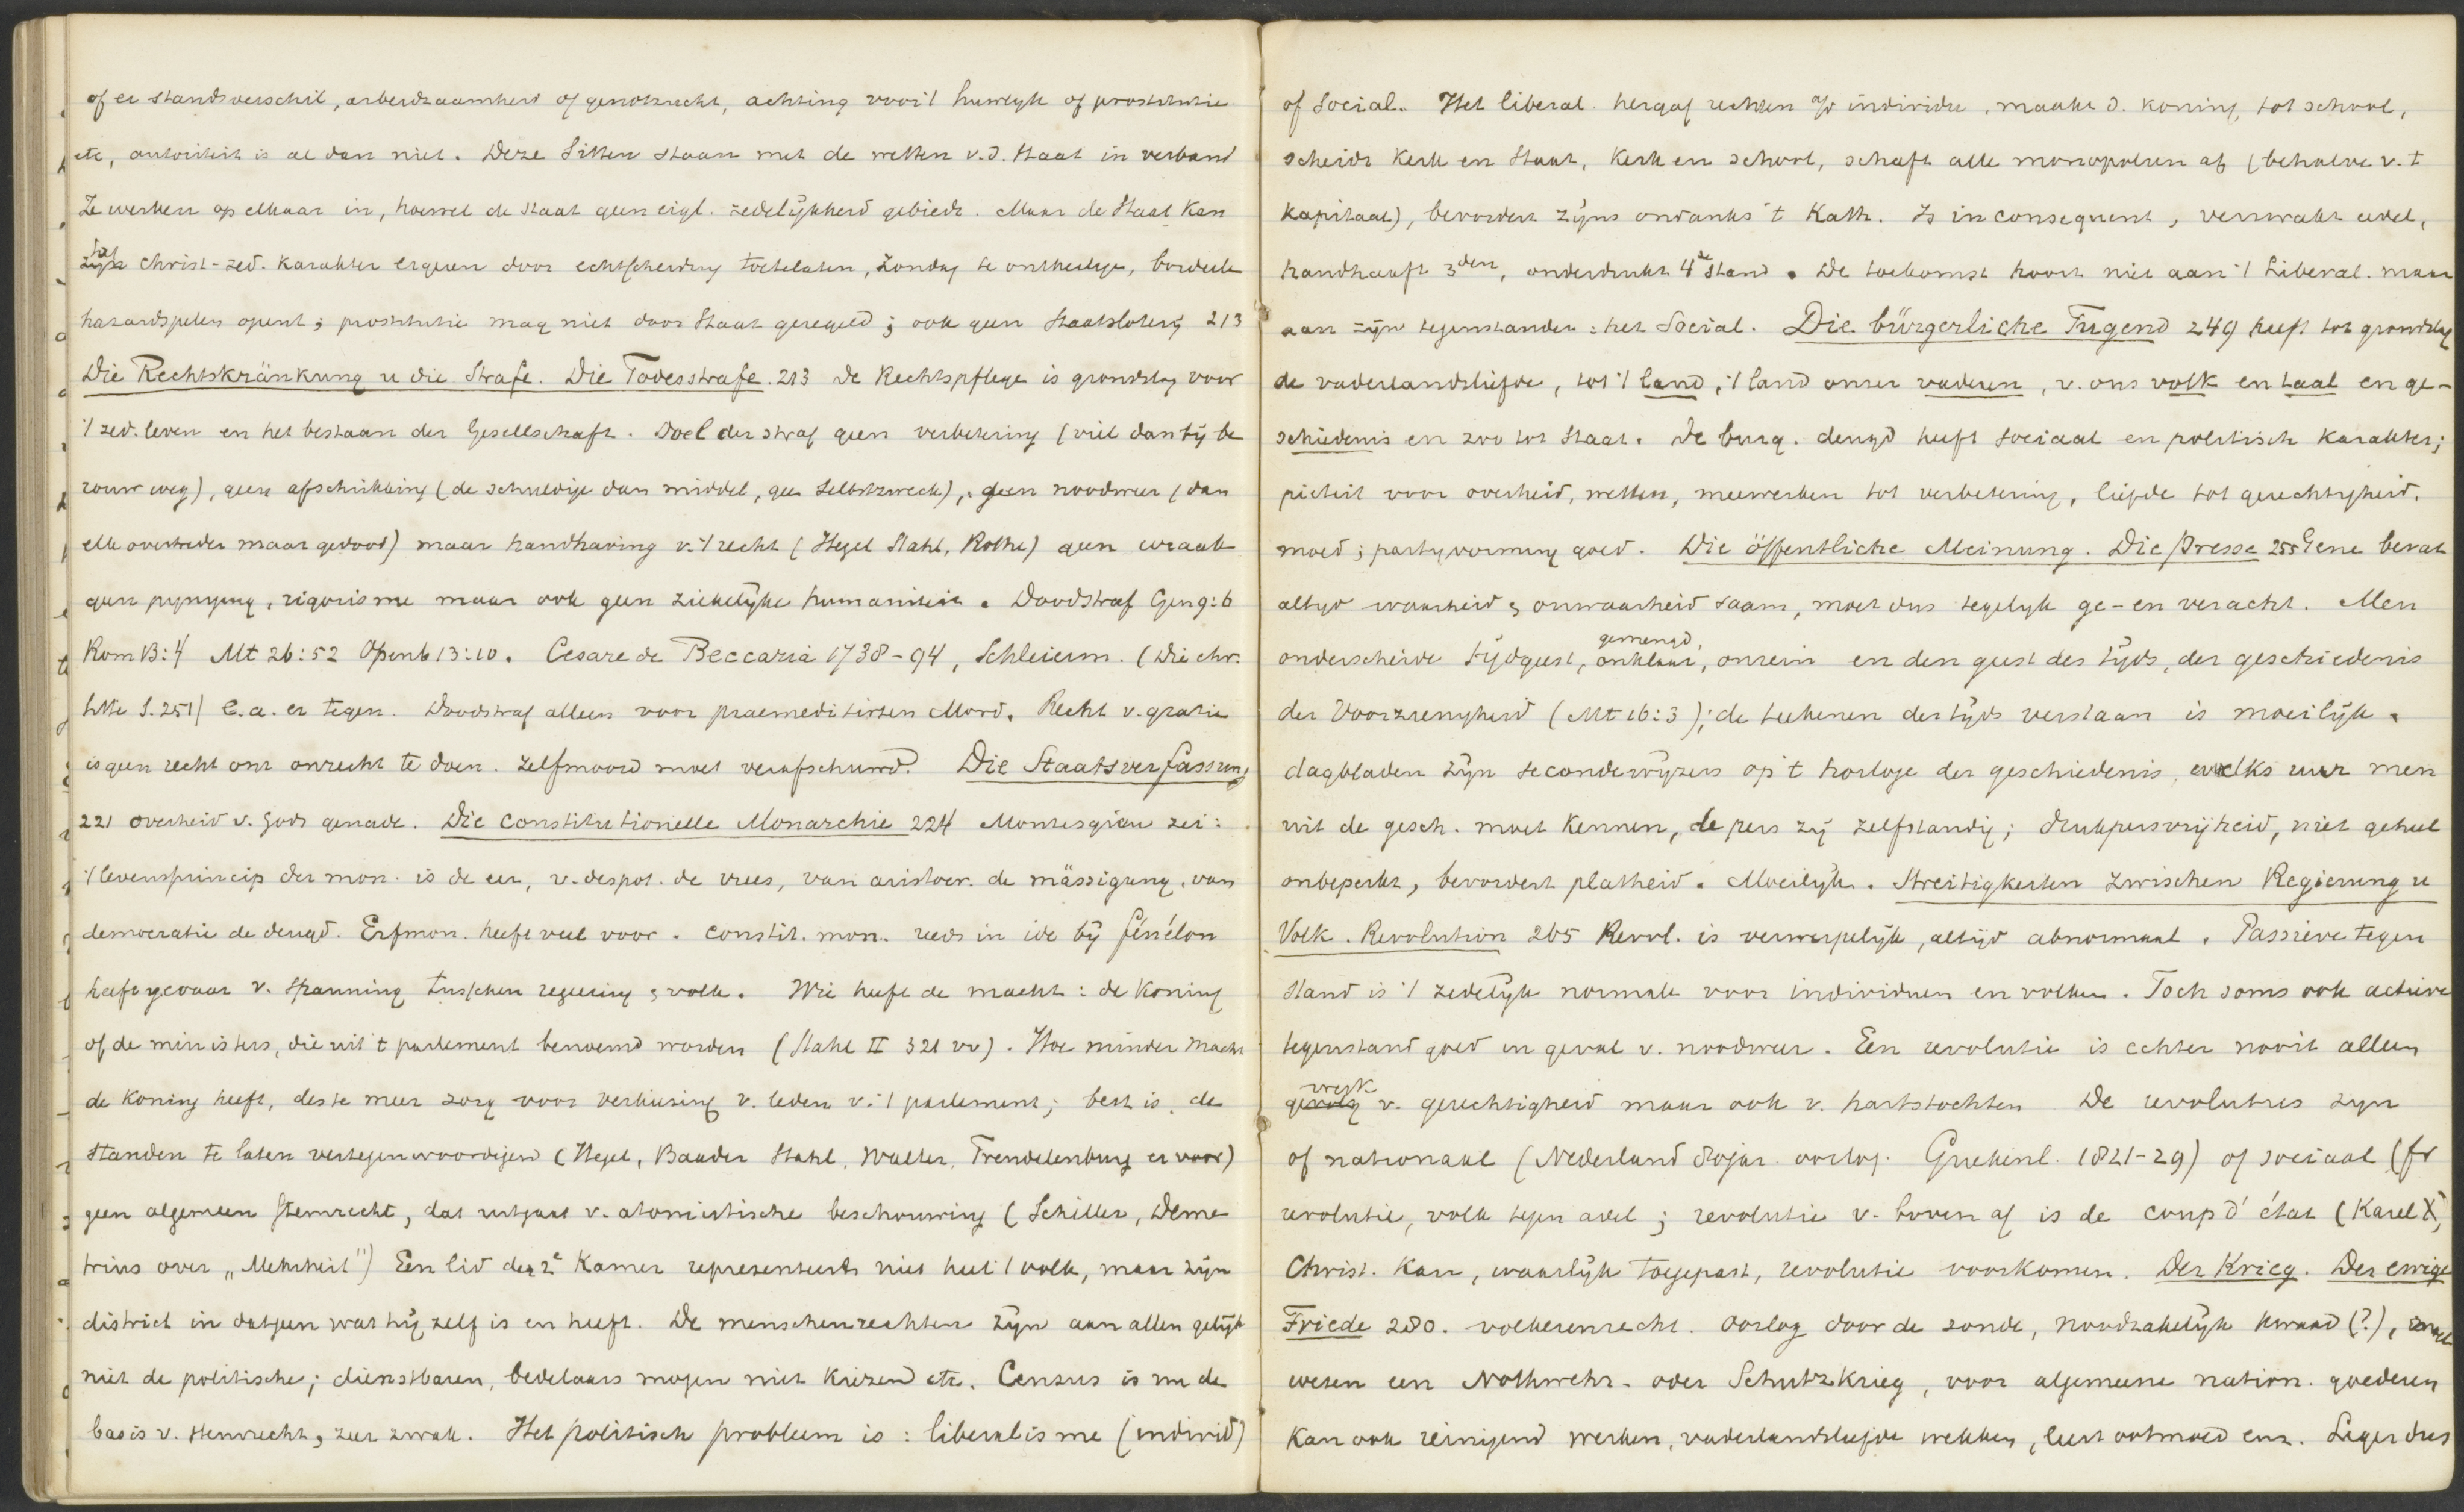 of er standsverschil, arbeidzaamheid of genotzucht, achting voor 't huwelijk of prostitutie
etc, autoriteit is al dan niet. Deze Sitten staan met de wetten v.d. Staat in verband
Ze werken op elkaar in, hoewel de staat geen eigl. zedelijkheid gebiedt. Maar de Staat kan
christ-zed. karakter ergeren door echtscheiding toetelaten, Zondag te ontheilige, bordeele
hazardspelen opent; prostitutie mag niet door Staat geregeld; ook geen Staatsloterij 213
Die Rechtskränkung u die Strafe. Die Todesstrafe. 213 De Rechtspflege is grondslag voor
't zed. leven en het bestaan der Gesellschaft. Doel der straf geen verbetering (viel dan bij be
rouw weg), geen afschrikking (de schuldige dan middel, geen Selbstzweck), geen noodweer (dan
elke overtreder maar gedood) maar handhaving v. 't recht (Hegel Stahl, Rothe) geen wraak
geen pijniging, rigorisme maar ook geen ziekelijke humaniteit. Doodstraf Gen 9:6
Rom 13:4 Mt 26:52 Openb 13:10. Cesare de Beccaria 1738-94, Schleierm. (Die chr.
Sitte S. 251) e.a. er tegen. Doodstraf alleen voor praemeditirten Mord. Recht v. gratie
is geen recht om onrecht te doen. Zelfmoord moet verafschuwd. Die Staatsverfassung
221 overheid v. Gods genade. Die constitutionelle Monarchie 224 Montesqieu zei:
't levensprincip der mon. is de eer, v. despot. de vrees, van aristocr. de mässigung, van
democratie de deugd. Erfmon. heeft veel voor. constit. mon. reeds in idee bij fénélon
heeft gevaar v. spanning tusschen regeering & volk. Wie heeft de macht: de Koning
of de ministers, die uit 't parlement benoemd worden (Stahl II 321 vv). Hoe minder macht
de koning heeft, des te meer zorg voor verkiezing v. leden v. 't parlement; best is, de
standen te laten vertegenwoordigen (Hegel, Baader Stahl, Walter, Trendelenburg er voor)
geen algemeen stemrecht, dat uitgaat v. atomistische beschouwing (Schiller, Deme
trius over „Mehrheit") Een lid der 2e Kamer representeert niet heel 't volk, maar zijn
district in datgeen wat hij zelf is en heeft. De menschenrechten zijn aan allen gelijk
niet de politische; dienstbaren, bedelaars mogen niet kiezen etc. Census is nu de
basis v. stemrecht, zeer zwak. Het politisch probleem is: liberalisme (individ)
of Social. Het liberal. hergaf rechten a/d individu, maakt d. koning tot school,
scheidt Kerk en Staat, Kerk en school, schaft alle monopolien af (behalve v. t
kapitaal), bevordert zijns ondanks 't Kath. Is inconsequent, verzwakt adel,
handhaaft 3den, onderdrukt 4e stand. De toekomst hoort niet aan 't Liberal. maar
aan zijn tegenstander: het Social. Die bürgerliche Tugend 249 heeft tot grondslag
de vaderlandsliefde, tot 't land, 't land onzer vaderen, v. ons volk en taal en ge-
schiedenis en zoo tot Staat. De burg. deugd heeft sociaal en politisch karakter;
pieteit voor overheid, wetten, meewerken tot verbetering, liefde tot gerechtigheid,
moed; partijvorming goed. Die öffentliche Meinung. Die Presse 255 Gene bevat
altijd waarheid & onwaarheid saam, moet dus tegelijk ge- en veracht. Men
onderscheide tijdgeest, gemengd, onklaar, onrein en den geest des tijds, der geschiedenis
der Voorzienigheid (Mt 16:3); de teekenen der tijds verstaan is moeilijk.
dagbladen zijn secondewijzers op 't horloge der geschiedenis, welks uur men
uit de gesch. moet kennen, de pers zij zelfstandig; drukpersvrijheid, niet geheel
onbeperkt, bevordert platheid. Moeilijk. Streitigkeiten zwischen Regierung u
Volk. Revolution 265 Revol. is verwerpelijk, altijd abnormaal. Passieve tegen
stand is 't zedelijk normale voor individuen en volken. Toch soms ook actieve
tegenstand goed in geval v. noodweer. Een revolutie is echter nooit alleen
werk v. gerechtigheid maar ook v. hartstochten De revoluties zijn
of nationaal (Nederland 80jar. oorlog. Griekenl. 1821-29) of sociaal (fr
revolutie, volk tegen adel; revolutie v. boven af is de coup d' état (Karel X,
Christ. kan, waarlijk toegepast, revolutie voorkomen. Der Krieg. Der ewige
Friede 280. volkerenrecht. Oorlog door de zonde, noodzakelijk kwaad (?),
wezen een Nothwehr- oder Schutzkrieg, voor algemeene nation. goederen
kan ook reinigend werken, vaderlandsliefde wekken, leert ootmoed enz. Leger dus